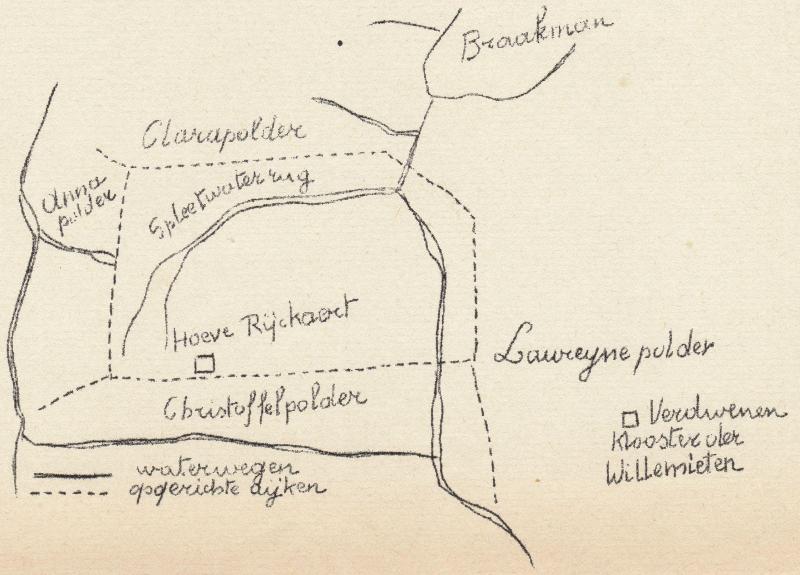 Braakman
Clarapolder
Anna
polder
Spleetwaterrug
Hoeve Rijckaert
Laureyne polder
Christoffelpolder
Verdwenen
Klooster der
Willemieten
waterwegen
opgerichte dijken